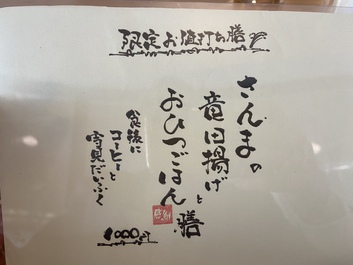 限定お値打ち膳
さんまの
竜田揚げと
おひつごはん膳
食後に
コーヒーと
雪見だいふく
1000円